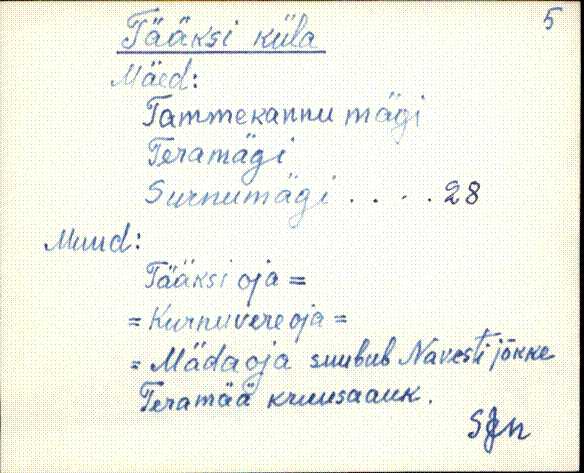 5
Tääksi küla
Mäed:
Tammekannu mägi
Teramägi
Surnumägi . . . . 28
Muud:
Tääksi oja =
= Kurnuvere oja =
= Mädaoja suubub Navesti jõkke
Teramää kruusaauk.